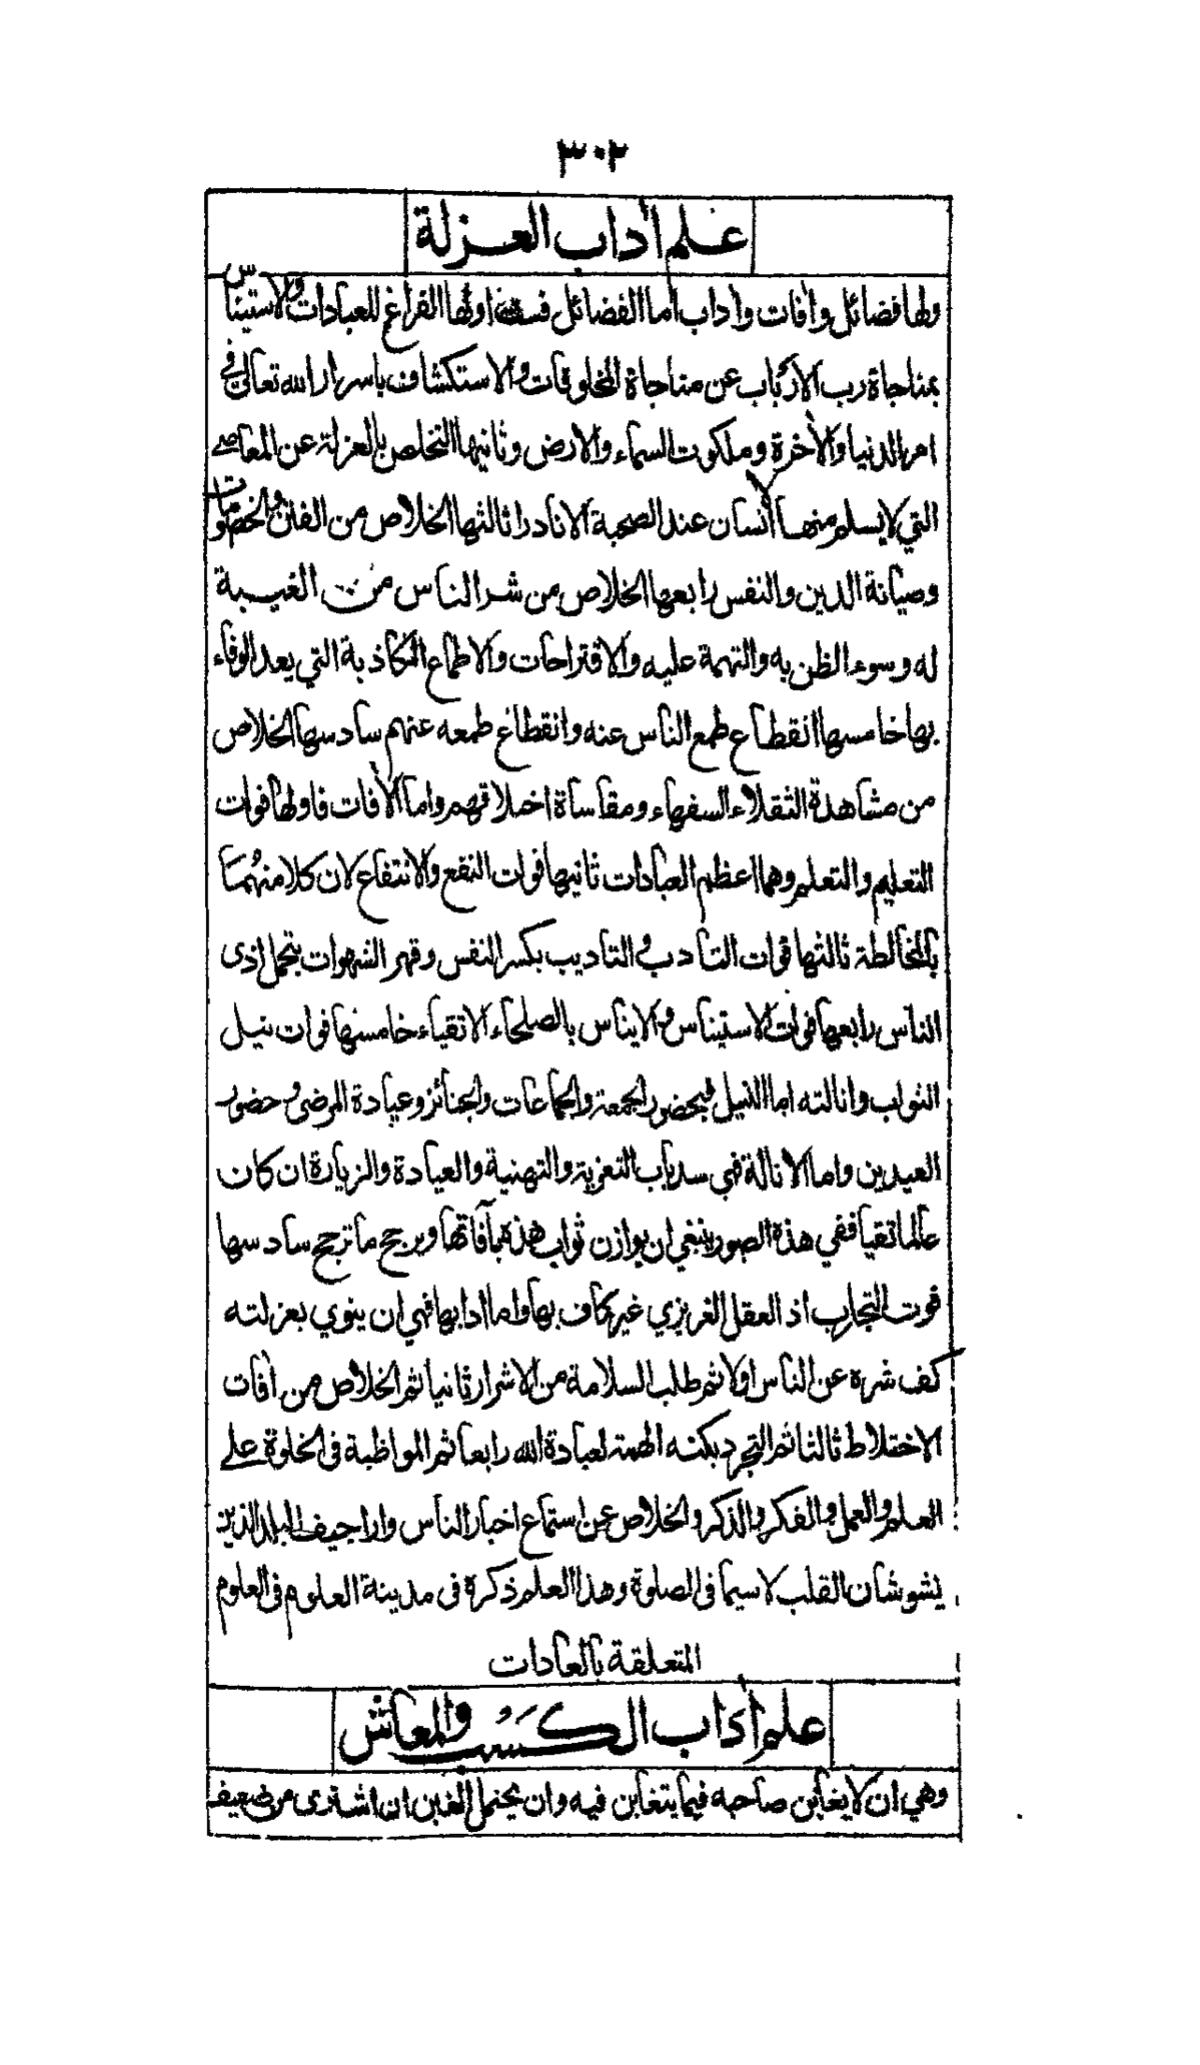 ٣٠٢
علم اداب العزلة
ولها فضائل وافات واداب اما الفضائل فستة اولها الفراغ للعبادات والاستيناس
بمناجاة رب الارباب عن مناجاة المخلوقات والاستكشاف باسرار الله تعالى في
امر الدنيا والآخرة وملكوت السماء والارض وثانيها التخلص بالعزلة عن المعاصي
التي لا يسلم منها الانسان عند الصحبة الا نادرا ثالثها الخلاص من الفتن والخصومات
وصيانة الدين والنفس رابعها الخلاص من شر الناس من الغيبة
له وسوء الظن به والتهمة عليه والاقتراحات والاطماع الكاذبة التي يعد الوفاء
بها خامسها انقطاع طمع الناس عنه وانقطاع طمعه عنهم سادسها الخلاص
من مشاهدة الثقلاء السفهاء ومقاساة اخلاقهم واما الأفات فاولها فوات
التعليم والتعلم وهما اعظم العبادات ثانيها فوات النفع والانتفاع لان كلا منهُما
بالمخالطة ثالثها فوات التأدب والتاديب بكسر النفس وقهر الشهوات بتحمل اذى
الناس رابعها فوات الاستيناس والايناس بالصلحاء الاتقياء خامسها فوات نيل
الثواب وانالته اما النيل فبحضور الجمعة والجماعات والجنائز وعيادة المرضى وحضور
العيدين واما الانالة فهي سد باب التعزية والتهنية والعيادة والزيارة ان كان
عالما تقيا ففي هذه الصور ينبغي ان يوازن ثواب هذه بآفاتها ويرجح ما ترجح سادسها
فوت التجارب اذ العقل الغريزي غير كاف بها واما ادابها فهي ان ينوي بعزلته
كف شره عن الناس اولا ثم طلب السلامة من الاشرار ثانيا ثم الخلاص من افات
الاختلاط ثالثا ثم التجرد بكنه الهمة لعبادة الله رابعا ثم المواظبة في الخلوة على
العلم والعمل والفكر والذكر والخلاص عن استماع اخبار الناس واراجيف البلد الذين
يشوشان القلب لا سيما في الصلوة وهذا العلم ذكره في مدينة العلوم في العلوم
المتعلقة بالعادات
علم اداب الكسب والمعاش
وهي ان لا يغابن صاحبه فيما يتغابن فيه وان يحتمل الغبن ان اشترى من ضعيف